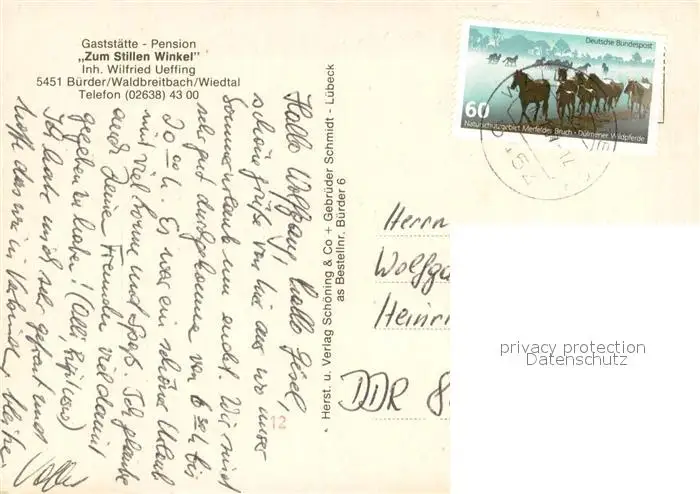 Gaststätte - Pension
„Zum Stillen Winkel"
Inh. Wilfried Ueffing
5451 Bürder/Waldbreitbach/Wiedtal
Telefon (02638) 43 00
Hallo Wolfgang! Hallo Gisel,
schöne Grüße von hier aus wo unser
Sommerurlaub nun endet. Wir sind
sehr gut durchgekommen von 6 30 h bis
10 00 h. Es war ein schöner Urlaub
mit viel Sonne und Spaß. Ich glaube
auch Deine Freunden viel damit
gegeben zu haben!
Ich habe mich sehr gefreut und
hoffe das wir in Verbindung bleiben
Herst. u. Verlag Schöning & Co + Gebrüder Schmidt - Lübeck
as Bestellnr. Bürder 6
12
Deutsche Bundespost
60
Naturschutzgebiet Merfelder Bruch · Dülmener Wildpferde
Herrn
Wolfga
Heinri
DDR 8
privacy protection
Datenschutz